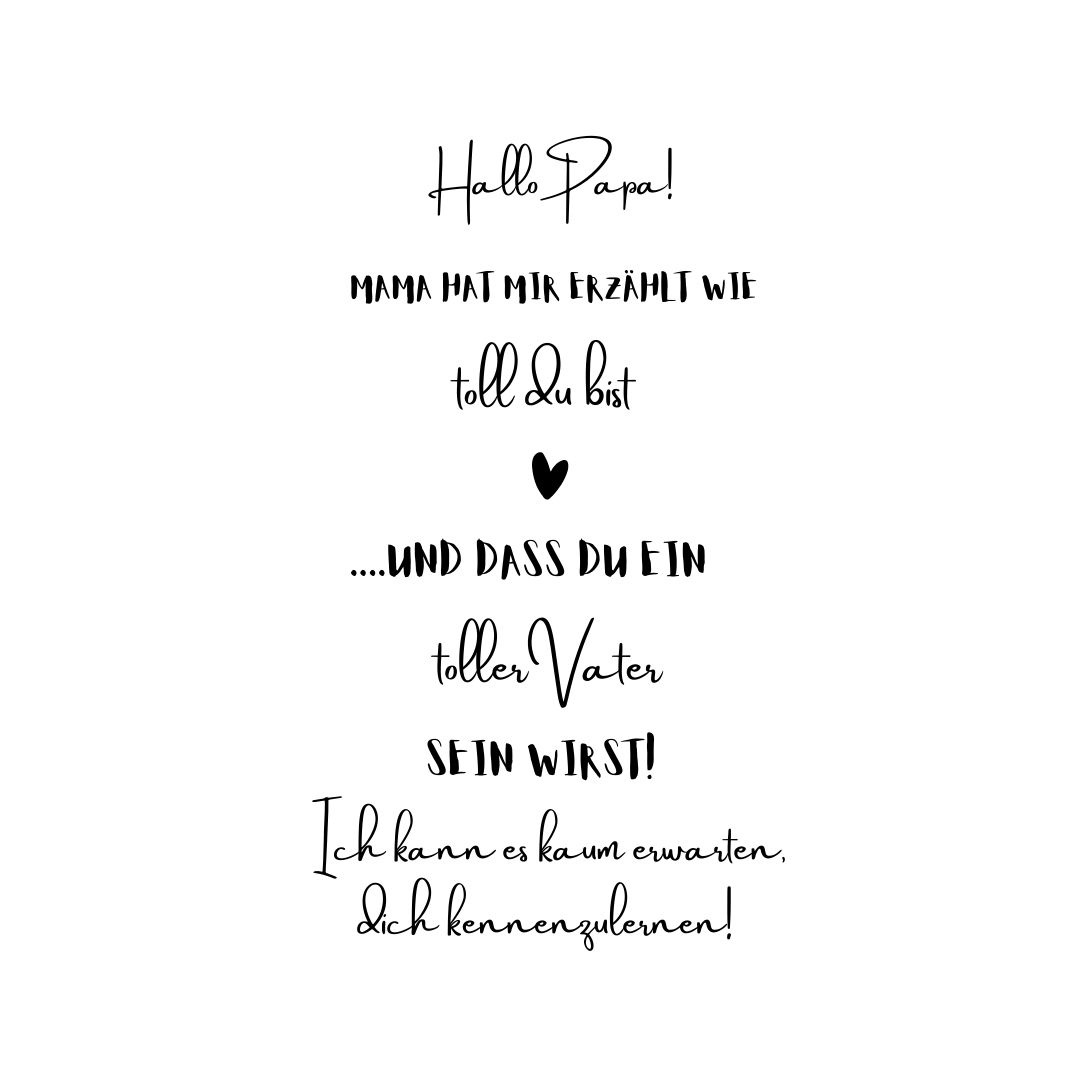 Hallo Papa!
MAMA HAT MIR ERZÄHLT WIE
toll du bist
....UND DASS DU EIN
toller Vater
SEIN WIRST!
Ich kann es kaum erwarten,
dich kennenzulernen!